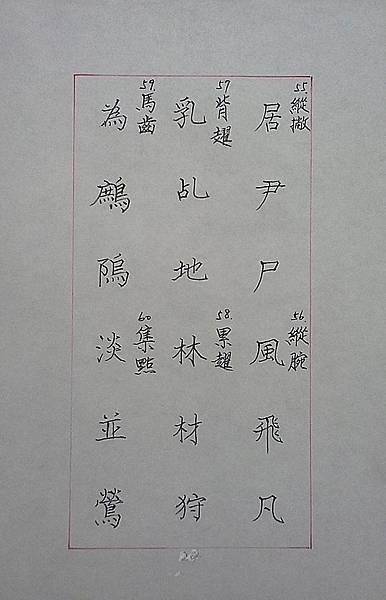 55.縱撇
居尹尸
56.縱腕
風飛凡
57.背趯
乳乩地
58.累趯
林材狩
59.馬齒
為隖
60.集點
淡並鶯